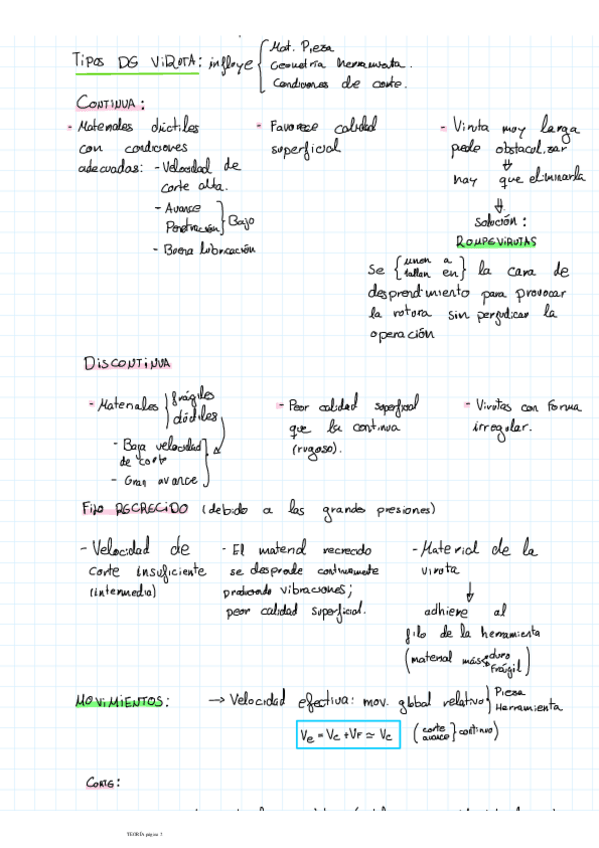 TIPOS DE VIRUTA: influye { Mat. Pieza
Geometría herramienta.
Condiciones de corte.
CONTINUA:
- Materiales dúctiles
con condiciones
adecuadas: - Velocidad de
corte alta.
- Avance
Penetración } Bajo
- Buena lubricación
- Favorece calidad
superficial
- Viruta muy larga
puede obstaculizar
⇓
hay que eliminarla
⇓
Solución:
ROMPEVIRUTAS
Se { unen a
tallan en } la cara de
desprendimiento para provocar
la rotura sin perjudicar la
operación
DISCONTINUA
- Materiales } frágiles
dúctiles
- Baja velocidad
de corte
- Gran avance
- Peor calidad superficial
que la continua
(rugoso).
- Virutas con forma
irregular.
FILO RECRECIDO (debido a las grandes presiones)
- Velocidad de
corte insuficiente
(intermedia)
- El material recrecido
se desprende continuamente
produciendo vibraciones;
peor calidad superficial.
- Material de la
viruta
↓
adhiere al
filo de la herramienta
(material más duro
frágil)
MOVIMIENTOS: → Velocidad efectiva: mov. global relativo } Pieza
Herramienta
Ve = Vc + VF ≃ Vc (corte
avance } continuo)
CORTE:
TEORÍA página 2